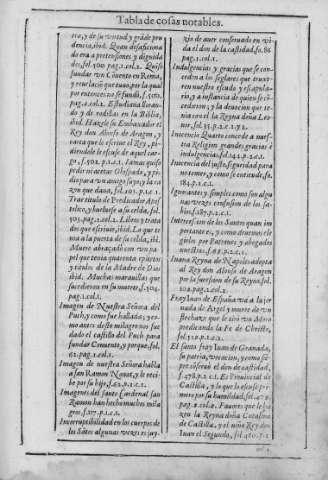 Tabla de cosas notables.
cta, y de su virtud y grã de pru
dencia, ibid. Quan desaficiona
do era a pretensiones y dignida
des, fol. 500. pag. 1. col. 1. Quiso
fundar vn Conuento en Roma,
por entonces no se fundò, f. 501.
pag. 2. col. 1. Estudiaua lloran-
do y de rodillas en la Biblia,
ibid. Hazele su Embaxador el
Rey don Alonso de Aragon, y
carta que le escriue el Rey, pi-
diendole se escuse de aquel car-
go, f. 502. p. 1. c. 1. Iamas quiso
pedir ni acetar Obispado, y pi-
zon que daua, fol. 502. p. 1. c. 2.
Trae titulo de Predicador Apos
tolico, y burlase a su celda, fol.
503. pag. 1. col. 1. Libros y trata
dos que escriuio, ibid. Lo que te
nia a la puerta de su celda, ibi.
Muere abraçado con vn pa-
pel que tenia quarenta epitetos
y titulos de la Madre de Dios
ibid. Muchas marauillas que
sucedieron en su muerte, f. 504.
pag. 1. col. 1.
Imagen de Nuestra Señora del
Puch, como fue hallada; y co-
mo antes deste milagro nos fue
dado el castillo del Puch para
fundar Conuento, y porque, fol.
62. pag. 1. col. 1.
Imagen de nuestra Señora habla
a san Ramon Nonat, y le reci-
be por su hijo, f. 62. p. 1. c. 1.
Imagenes del santo Cardenal san
Ramon han hecho muchos mila
gros, f. 117. p. 1. c. 1.
Incorruptibilidad en los cuerpos de
los Sãtos algunas vezes es juy-
zio de auer conseruado en vi-
da el don de la castidad, fo. 86
pag. 1. c. 1.
Indulgencias y gracias que se con-
ceden a los seglares que traxe-
ren nuestro escudo y escapula-
rio, y a instancia de quien se cõ-
cedieron; y la deuocion que te-
nia con el la Reyna doña Leo-
nor, fol. 33. p. 1. c. 1. y 2.
Inocencio Quarto concede a nues-
tra Religion grandes gracias è
indulgencias, fol. 142. p. 2. c. 1.
Inocencia del justo, seguridad para
no temer, y como se entiende, fo.
184. p. 1. c. 1.
Ignorantes y simples como son algu
nas vezes confusion de los sa-
bios, f. 187. p. 1. c. 1.
Intercession de los Santos quan im
portante es, y como deuemos ele
girlos por Patrones y abogados
nuestros, f. 68. p. 1. c. 1.
Iuana Reyna de Napoles adopta
al Rey don Alonso de Aragon
por la sucession de su Reyno, fol.
504. pag. 2. col. 1.
Fray Iuan de España va a la jor-
nada de Argel, y muere de vn
flechazo que le tirò vn Moro
predicando la Fe de Christo,
fol. 512. p. 1. c. 1.
El santo fray Iuan de Granada,
su patria, vocacion, y como siẽ-
pre conseruò el don de castidad,
f. 478. p. 2. c. 1. Es Prouincial de
Castilla, y lo que le escusò pri-
mero por su humildad, f. 478.
pag. 2. col. 2. Fauores que le ha-
zen la Reyna doña Catalina
de Castilla, y el niño Rey don
Iuan el Segundo, fol. 480. p. 1